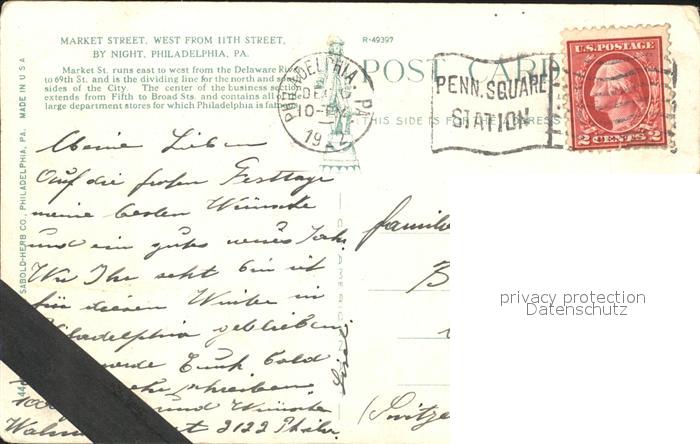 MARKET STREET, WEST FROM 11TH STREET,
BY NIGHT, PHILADELPHIA, PA.
Market St. runs east to west from the Delaware
to 69th St. and is the dividing line for the north and
sides of the City. The center of the business section
extends from Fifth to Broad Sts. and contains all
large department stores for which Philadelphia is
R-49397
POST CARD
THIS SIDE IS FOR ADDRESS
PHILADELPHIA, PA.
10-PM
19
PENN. SQUARE
STATION
U.S. POSTAGE
2 CENTS 2
MADE IN U S A
SABOLD-HERB CO., PHILADELPHIA, PA.
Meine Lieben
Auf die frohen Festtage
meine besten Wünsche
und ein gutes neues Jahr.
Wie Ihr seht bin ich
für diesen Winter in
Philadelphia geblieben
werde Euch bald
schreiben
1000 und Wünsche
Walnut 2122 Phila
familie
B
(Switze
privacy protection
Datenschutz